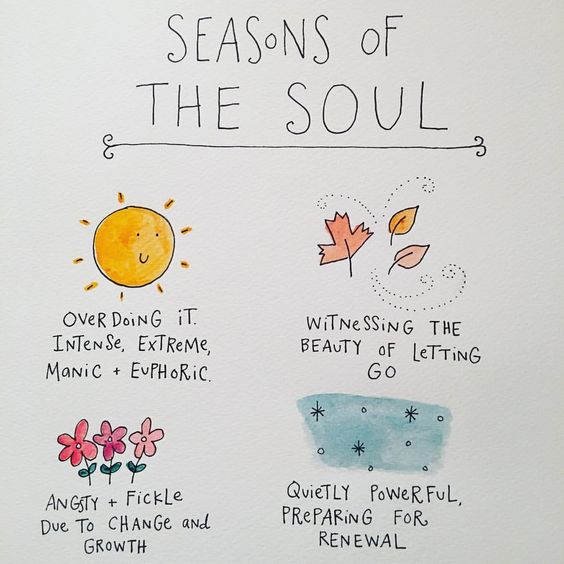 SEASoNS OF
THE SOUL
OVERDOING iT.
INTENSE, EXTREME,
MANiC + EUPHORiC.
WiTNESSiNG THE
BEAUTY OF LETTiNG
GO
ANGSTY + FiCKLE
DUE TO CHANGE AND
GROWTH
QUiETLY POWERFUL,
PREPARiNG FOR
RENEWAL